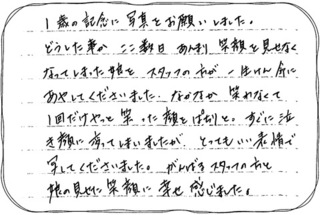 1歳の記念に写真をお願いしました。
どうした事か ここ数日 あんまり 笑顔を見せなく
なってしまった娘を スタッフの方が 一生けん命に
あやしてくださいました。なかなか 笑わなくて
1回だけやっと 笑った顔をぱちりと。すぐに泣
き顔になってしまいましたが、とってもいい表情で
写してくださいました。がんばるスタッフの方と
娘の見せた笑顔に 幸せ 感じました。